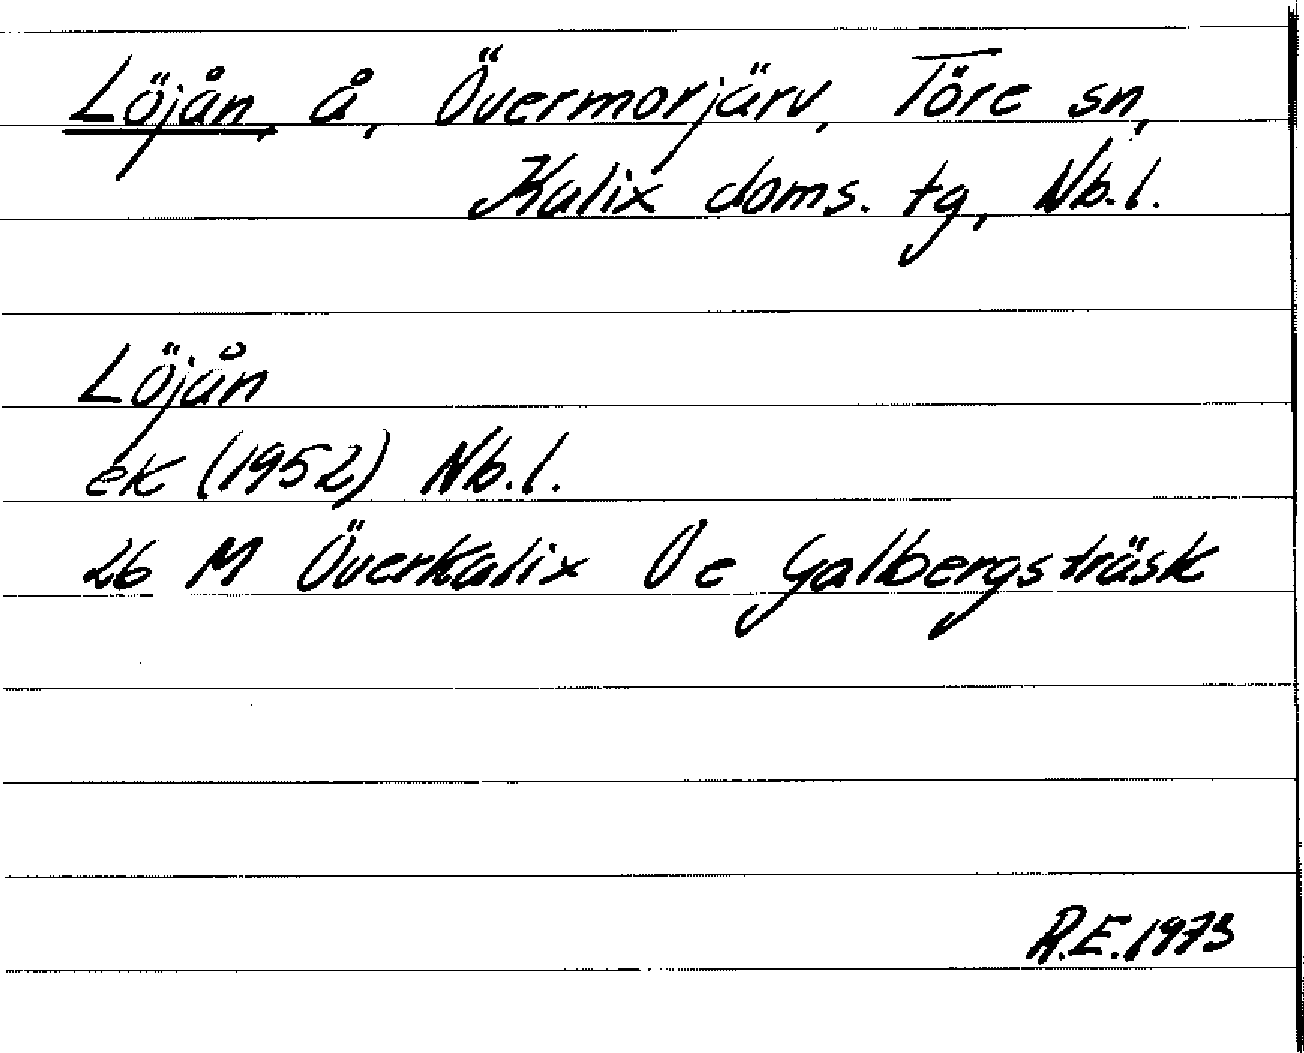 Löjån, å, Övermorjärv, Töre sn,
Kalix doms. tg, Nb.l.
Löjån
ek (1952) Nb.l.
26 M Överkalix Ö e Galbergsträsk
R.E.1973